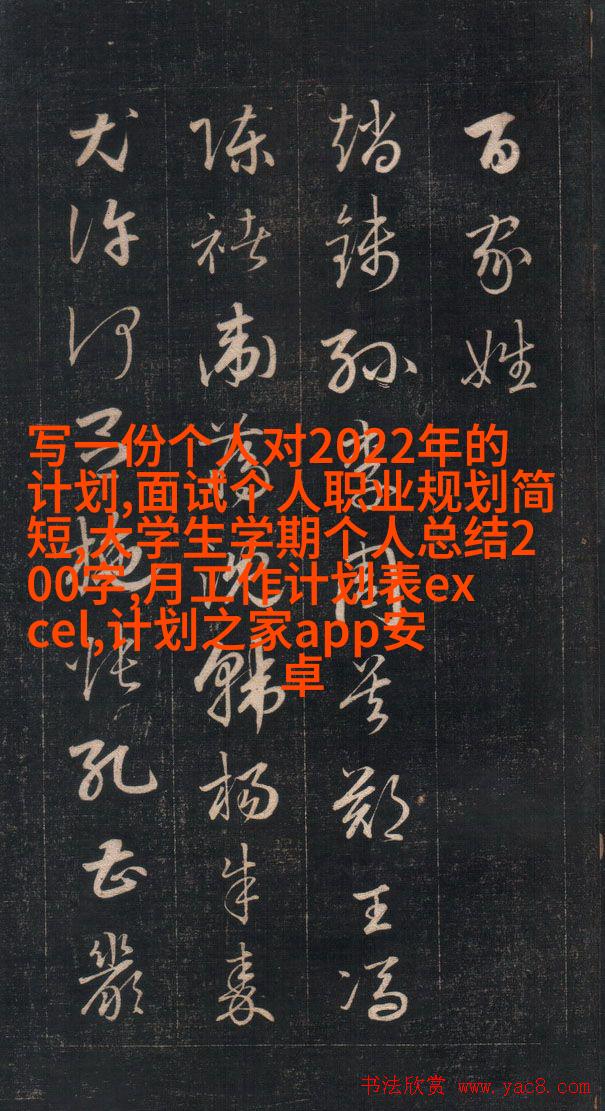 百家姓
趙錢孫李周吳鄭王馮
陳褚衛蔣沈韓楊朱秦
尤許何呂施張孔曹嚴
写一份个人对2022年的
计划,面试个人职业规划简
短,大学生学期个人总结2
00字,月工作计划表ex
cel,计划之家app安
卓
书法欣赏 www.yac8.com